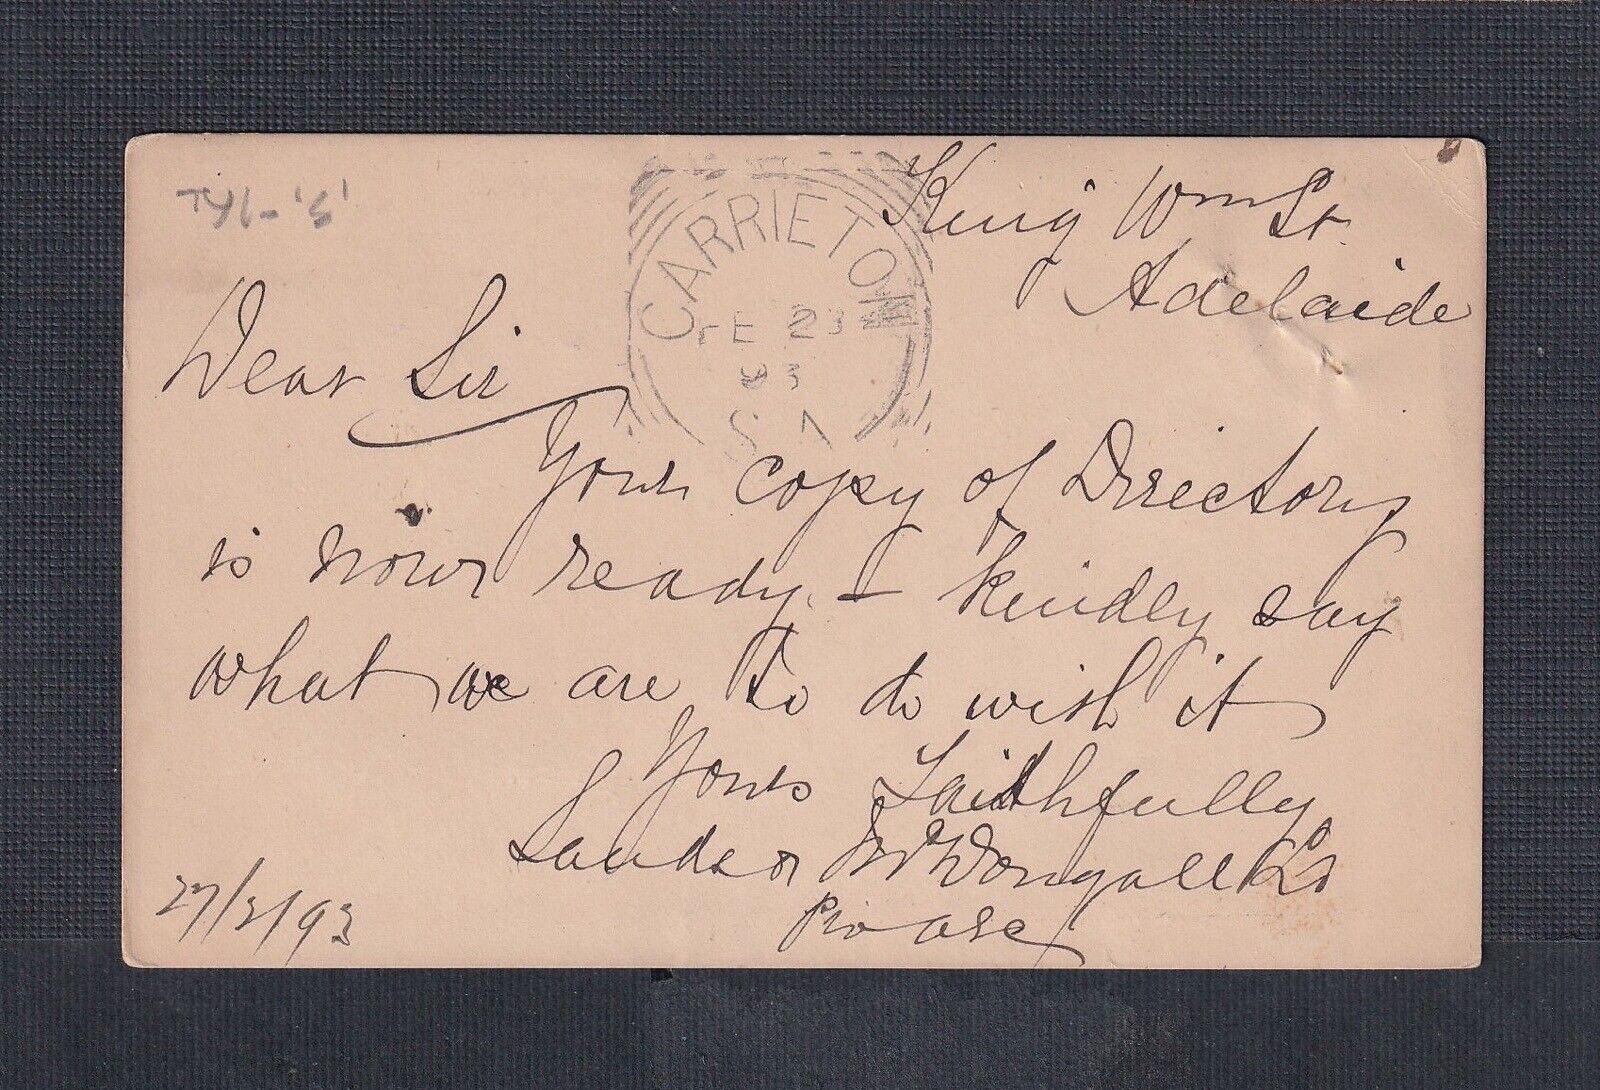 King Wm St.
Adelaide
CARRIETON
FE 23
93
S.A
Dear Sir
Your copy of Directory
is now ready. – kindly say
what we are to do with it
Yours Faithfully
Sands & McDougall Ld
27/2/93